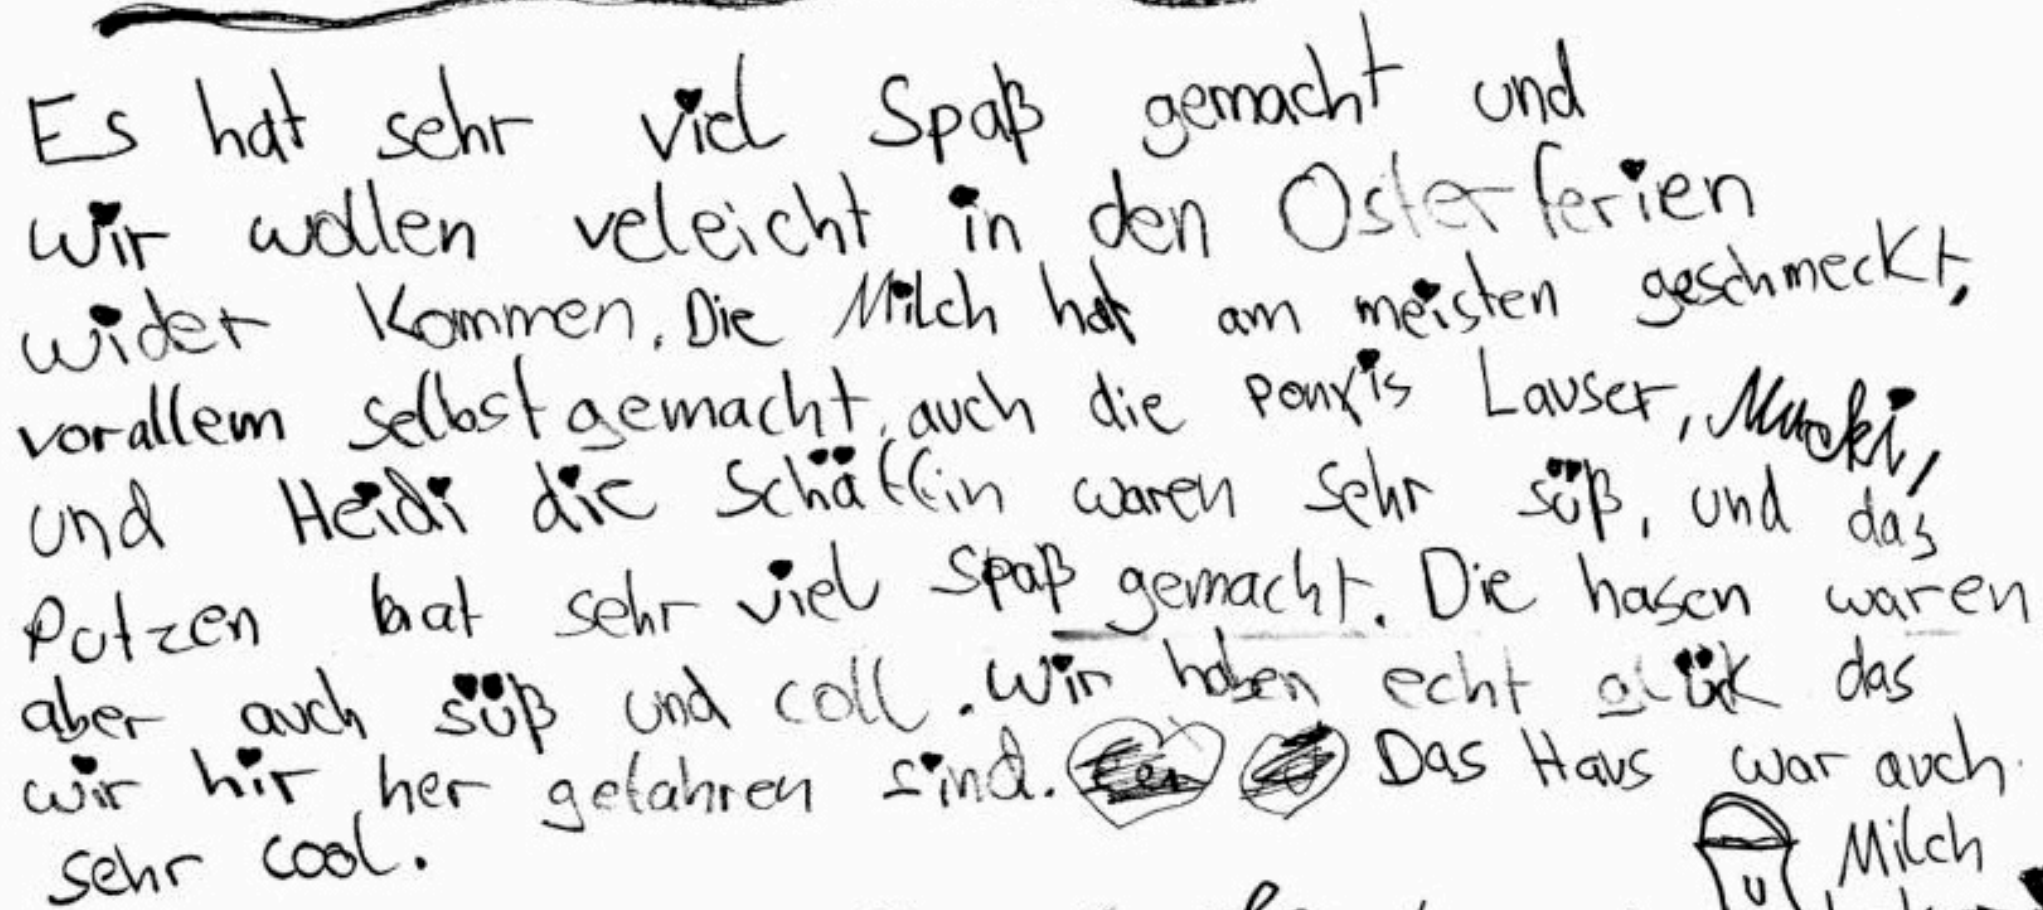 Es hat sehr viel Spaß gemacht und
wir wollen veleicht in den Osterferien
wider Kommen. Die Milch hat am meisten geschmeckt,
vorallem selbstgemacht, auch die ponxis Lauser, Mucki,
und Heidi die Schäffin waren sehr süß, und das
Putzen hat sehr viel Spaß gemacht. Die hasen waren
aber auch süß und coll. Wir haben echt glük das
wir hir her gefahren sind. Das Haus war auch
sehr cool.
Milch